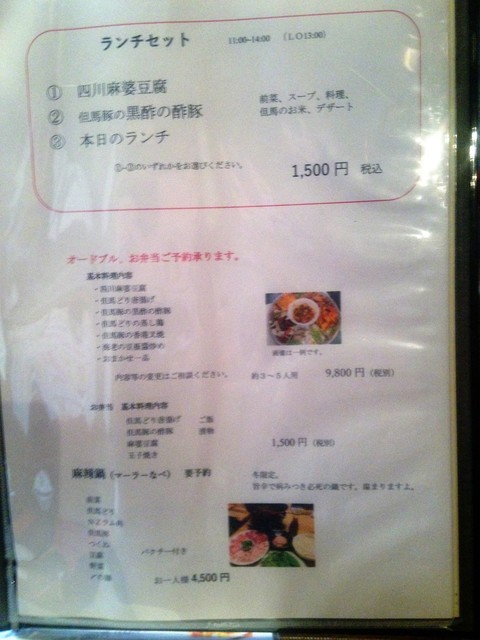 ランチセット 11:00~14:00 (L.O13:00)
① 四川麻婆豆腐
② 但馬豚の黒酢の酢豚
③ 本日のランチ
前菜、スープ、料理、
但馬のお米、デザート
①~③のいずれかをお選びください。
1,500円 税込
オードブル、お弁当ご予約承ります。
基本料理内容
・四川麻婆豆腐
・但馬どり唐揚げ
・但馬豚の黒酢の酢豚
・但馬どりの蒸し鶏
・但馬豚の香港叉焼
・海老の豆板醤炒め
・おまかせ一品
画像は一例です。
内容等の変更はご相談ください。 約3~5人用 9,800円(税別)
お弁当 基本料理内容
但馬どり唐揚げ ご飯
但馬豚の酢豚 漬物
麻婆豆腐
玉子焼き
1,500円(税別)
麻辣鍋(マーラーなべ) 要予約
冬限定。
旨辛で病みつき必死の鍋です。温まりますよ。
前菜
但馬どり
仔羊ラム肉
但馬豚
つくね
豆腐
野菜
〆の麺
パクチー付き
お一人様 4,500円